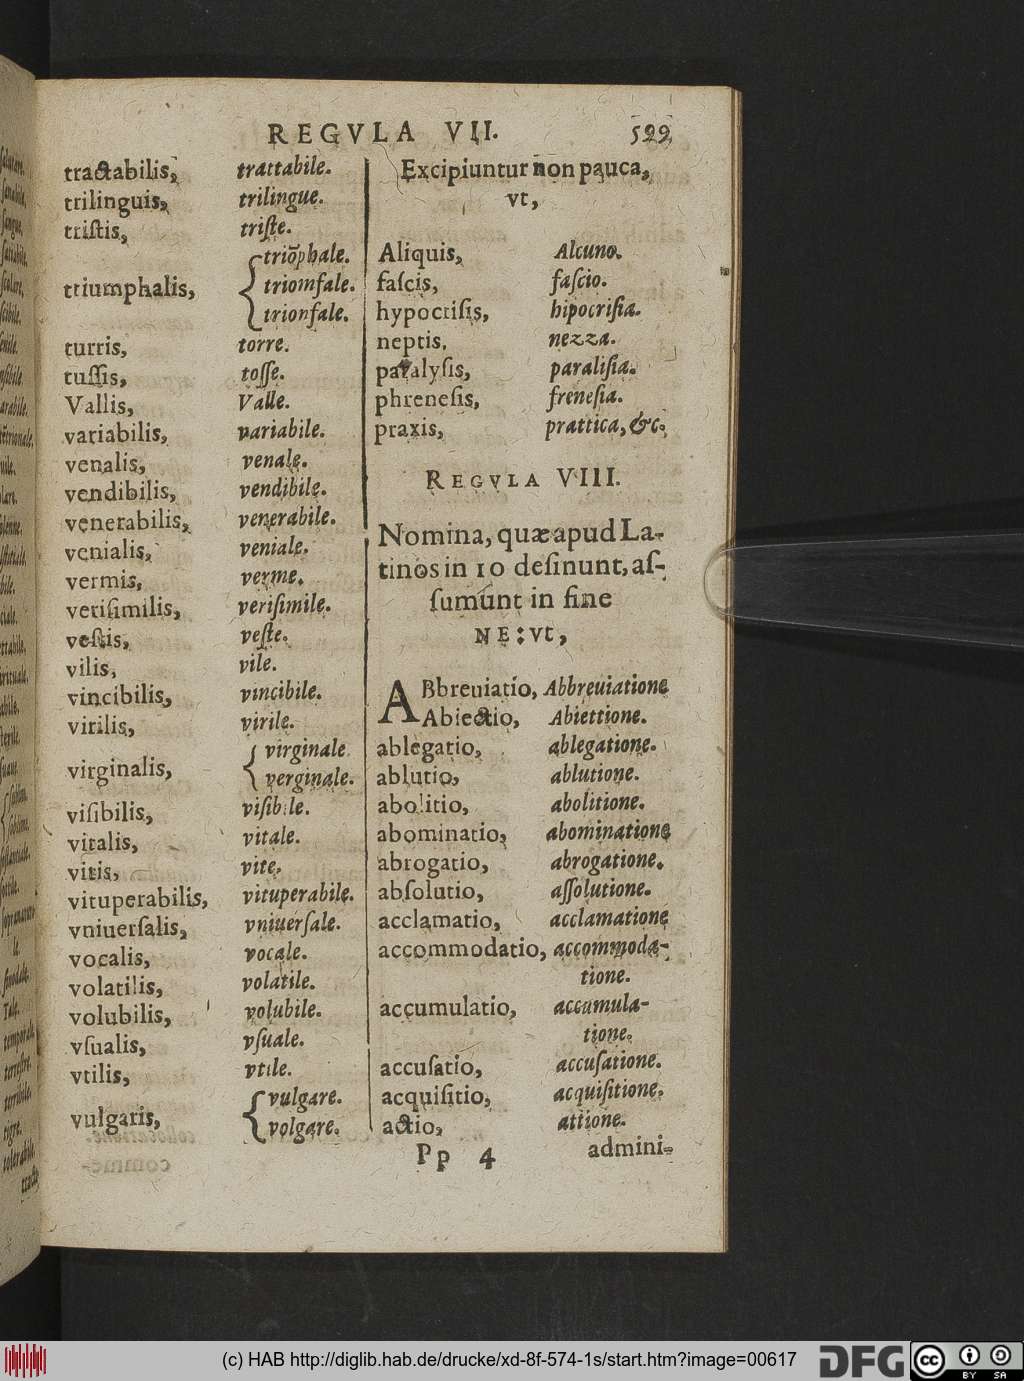 REGVLA VII. 599
tractabilis, trattabile.
trilinguis, trilingue.
tristis, triste.
triumphalis, triõphale.
triomfale.
trionfale.
turris, torre.
tussis, tosse.
Vallis, Valle.
variabilis, variabile.
venalis, venale.
vendibilis, vendibile.
venerabilis, venerabile.
venialis, veniale.
vermis, verme.
verisimilis, verisimile.
vestis, veste.
vilis, vile.
vincibilis, vincibile.
virilis, virile.
virginalis, virginale
verginale.
visibilis, visibile.
vitalis, vitale.
vitis, vite.
vituperabilis, vituperabile.
vniuersalis, vniuersale.
vocalis, vocale.
volatilis, volatile.
volubilis, volubile.
vsualis, vsuale.
vtilis, vtile.
vulgaris, vulgare.
volgare.
Excipiuntur non pauca,
vt,
Aliquis, Alcuno.
fascis, fascio.
hypocrisis, hipocrisia.
neptis, nezza.
paralysis, paralisia.
phrenesis, frenesia.
praxis, prattica, &c.
REGVLA VIII.
Nomina, quæ apud La-
tinos in IO desinunt, as-
sumunt in fine
NE: vt,
ABbreuiatio, Abbreuiatione
Abiectio, Abiettione.
ablegatio, ablegatione.
ablutio, ablutione.
abolitio, abolitione.
abominatio, abominatione
abrogatio, abrogatione.
absolutio, assolutione.
acclamatio, acclamatione
accommodatio, accommoda-
tione.
accumulatio, accumula-
tione.
accusatio, accusatione.
acquisitio, acquisitione.
actio, attione.
Pp 4 admini-
(c) HAB http://diglib.hab.de/drucke/xd-8f-574-1s/start.htm?image=00617
DFG
cc BY SA